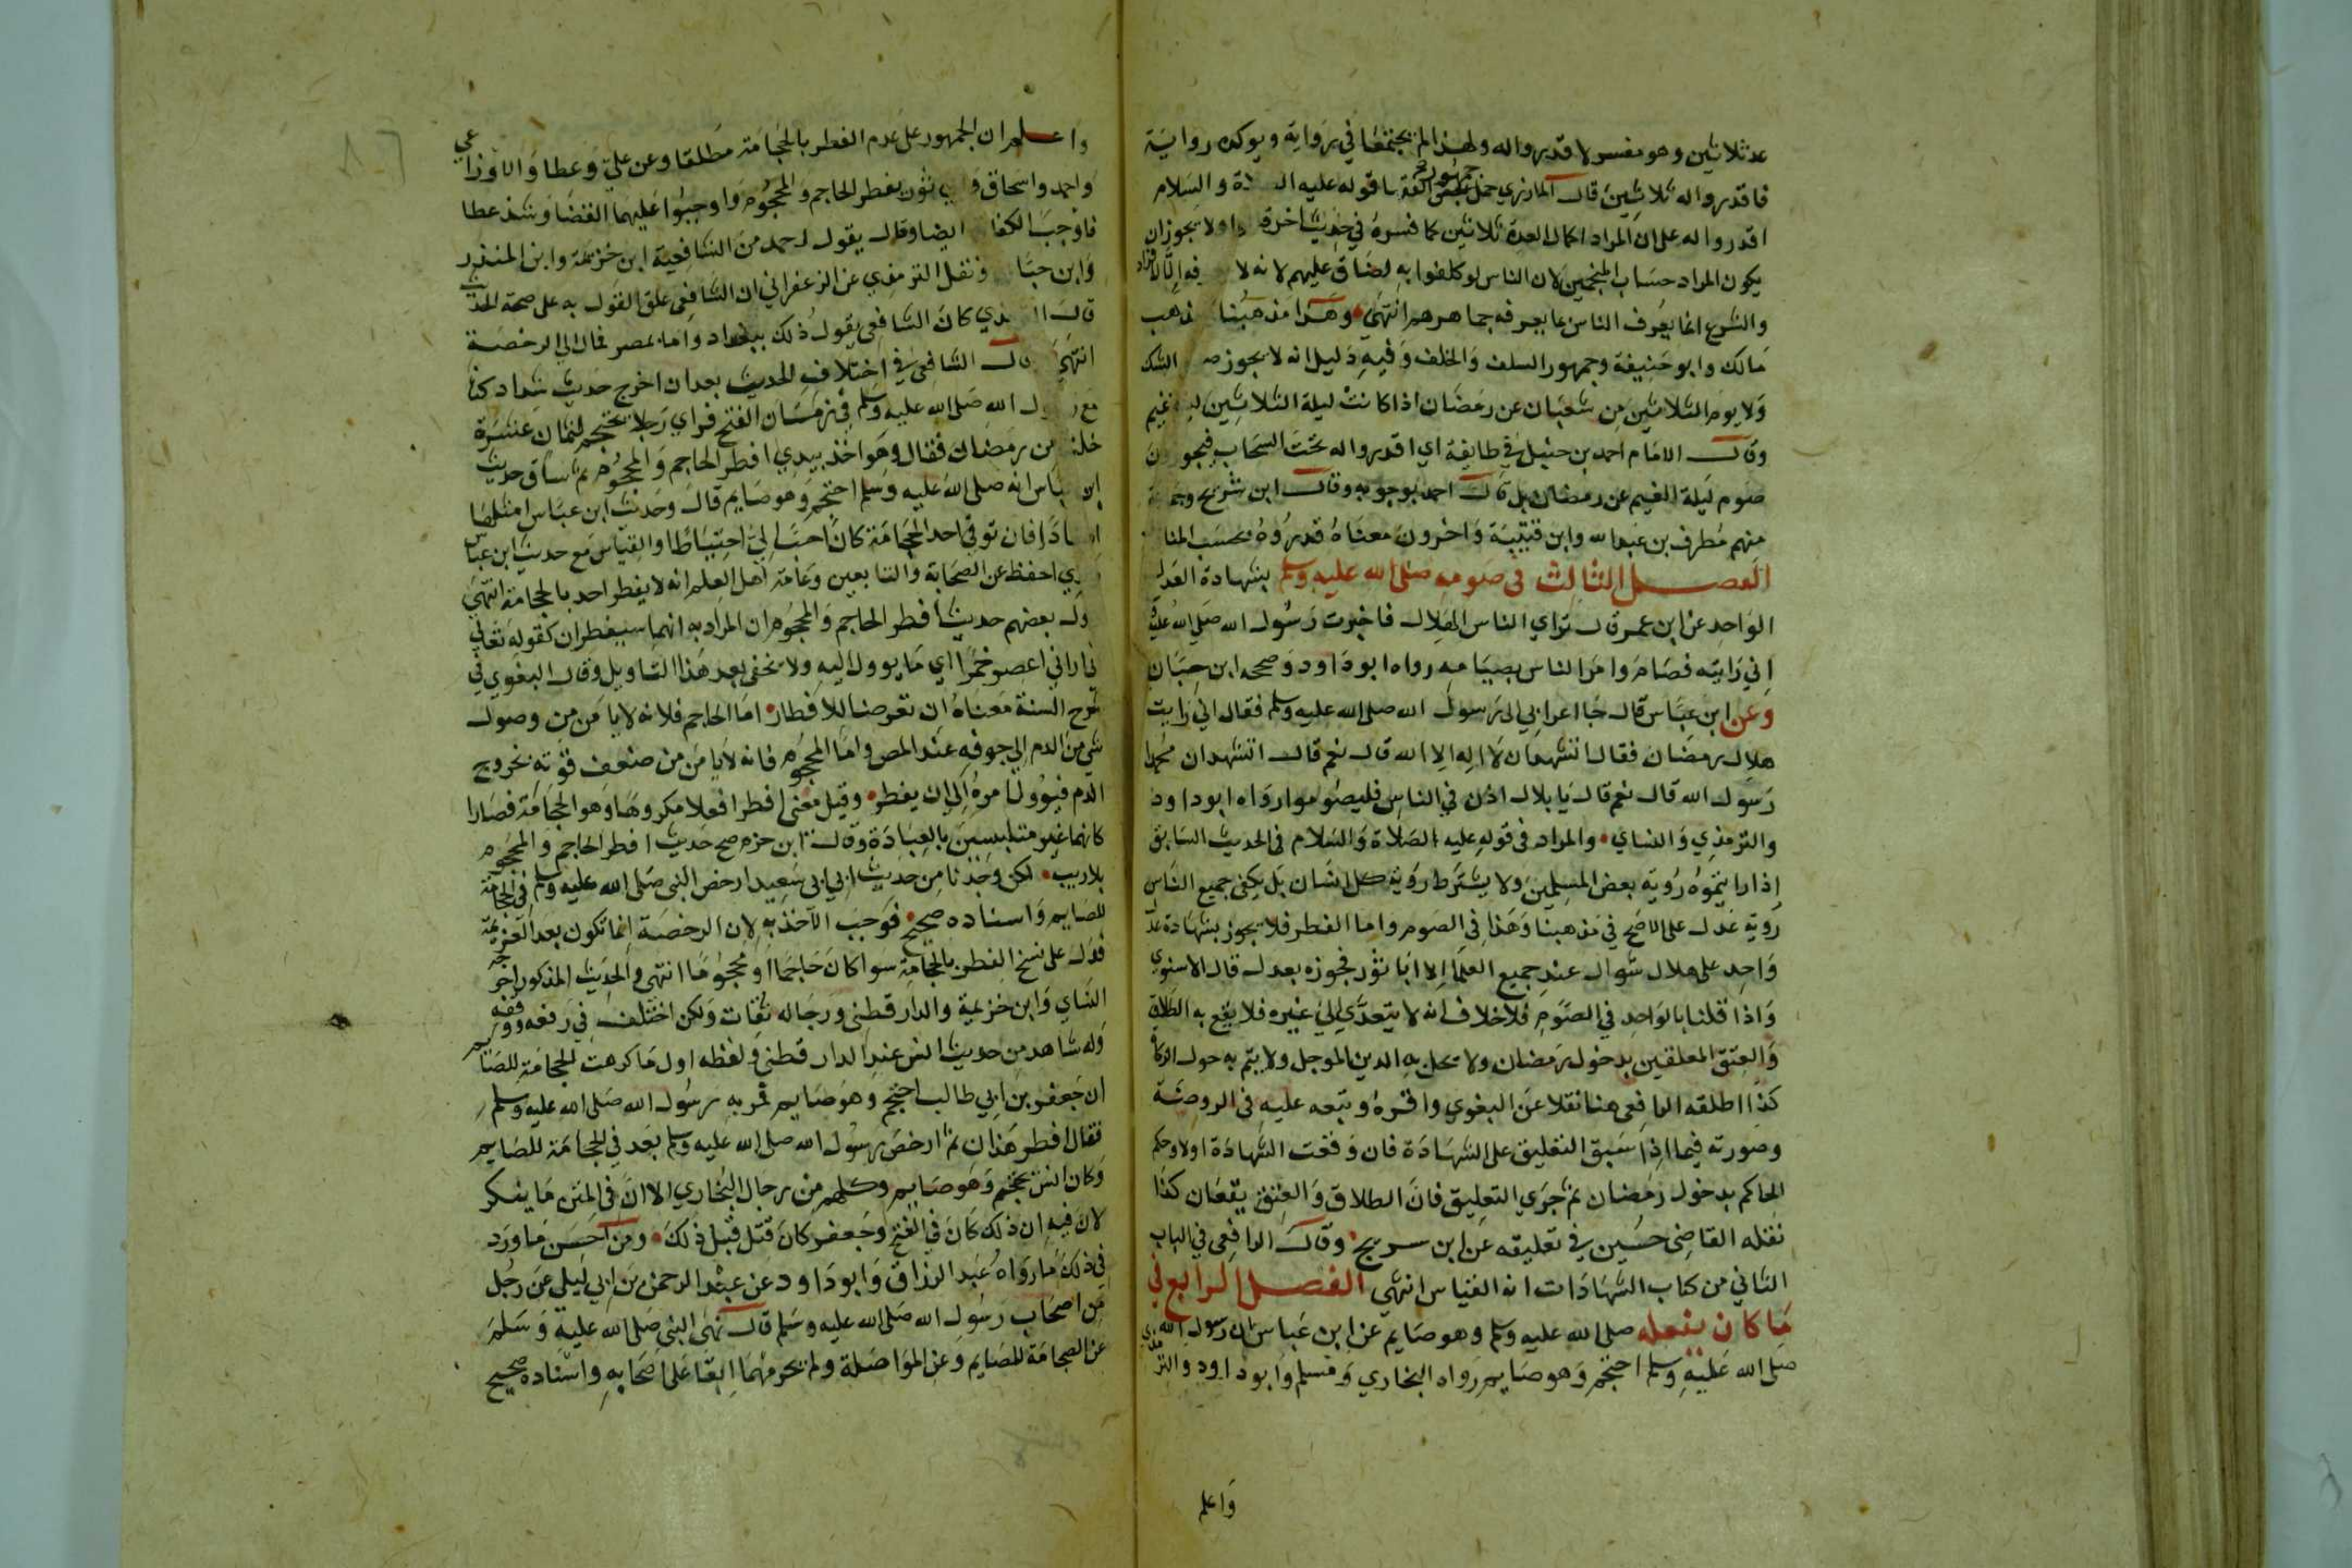 عد ثلاثين وهو مفسر لاقدروا له ولهذا لم يجتمعا في رواية ويوكده رواية
فاقدروا له ثلاثين قال المازري حمل جمهور الفقها قوله عليه الصلاة والسلام
اقدروا له على ان المراد اكمال العدة ثلاثين كما فسره في حديث اخر قالوا ولا يجوز ان
يكون المراد حساب المنجمين لان الناس لو كلفوا به لضاق عليهم لانه لا يعرفه الا افراد
والشرع انما يعرف الناس بما يعرفه جماهيرهم انتهى وهذا مذهبنا ومذهب
مالك وابو حنيفة وجمهور السلف والخلف وفيه دليل انه لا يجوز صوم الشك
ولا يوم الثلاثين من شعبان عن رمضان اذا كانت ليلة الثلاثين ليلة غيم
وقال الامام احمد بن حنبل في طايفة اي اقدروا له تحت السحاب فيجوزون
صوم ليلة الغيم عن رمضان بل قال احمد بوجوبه وقال ابن شريح وجماعة
منهم مطرف بن عبدالله وابن قتيبة واخرون معناه قدروه بحسب المنازل
الفصل الثالث في صومه صلى الله عليه وسلم بشهادة العدل
الواحد عن ابن عمر قال تراي الناس الهلال فاخبرت رسول الله صلى الله عليه
اني رايته فصام وامر الناس بصيامه رواه ابو داود وصححه ابن حبان
وعن ابن عباس قال جا اعرابي الى رسول الله صلى الله عليه وسلم فقال اني رايت
هلال رمضان فقال اتشهد ان لا اله الا الله قال نعم قال اتشهد ان محمدا
رسول الله قال نعم قال يا بلال اذن في الناس فليصوموا رواه ابو داود
والترمذي والنساي والمراد في قوله عليه الصلاة والسلام في الحديث السابق
اذا رايتموه رؤية بعض المسلمين ولا يشترط رؤية كل انسان بل يكفي جميع الناس
رؤية عدل على الاصح في مذهبنا وهذا في الصوم واما الفطر فلا يجوز بشهادة عدل
واحد على هلال شوال عند جميع العلما الا ابا ثور فجوزه بعدل قال الاسنوي
واذا قلنا بالواحد في الصوم فلا خلاف انه لا يتعدى الى غيره فلا يقع به الطلاق
والعتق المعلقين بدخول رمضان ولا يحل به الدين الموجل ولا يتم به حول الزكاة
كذا اطلقه الرافعي هنا نقلا عن البغوي واقره وتبعه عليه في الروضة
وصورته فيما اذا سبق التعليق على الشهادة فان وقعت الشهادة اولا وحكم
الحاكم بدخول رمضان ثم جرى التعليق فان الطلاق والعتق يقعان كذا
نقله القاضي حسين في تعليقه عن ابن سريج وقال الرافعي في الباب
الثاني من كتاب الشهادات انه القياس انتهى الفصل الرابع في
ما كان يفعله صلى الله عليه وسلم وهو صايم عن ابن عباس ان رسول الله
صلى الله عليه وسلم احتجم وهو صايم رواه البخاري ومسلم وابو داود والترمذي
واعلم
واعلم ان الجمهور على عدم الفطر بالحجامة مطلقا وعن علي وعطا والاوزاعي
واحمد واسحاق وابي ثور يفطر الحاجم والمحجوم واوجبوا عليهما القضا وشذ عطا
فاوجب الكفارة ايضا وقال بقول احمد من الشافعية ابن خزيمة وابن المنذر
وابن حبان ونقل الترمذي عن الزعفراني ان الشافعي علق القول به على صحة الحديث
قال الترمذي كان الشافعي يقول ذلك ببغداد واما بمصر فمال الى الرخصة
انتهى وقال الشافعي في اختلاف الحديث بعد ان اخرج حديث شداد كنا
مع رسول الله صلى الله عليه وسلم في زمان الفتح فراي رجلا يحتجم لثمان عشرة
خلت من رمضان فقال وهو اخذ بيدي افطر الحاجم والمحجوم ثم ساق حديث
ابن عباس انه صلى الله عليه وسلم احتجم وهو صايم قال وحديث ابن عباس امثلهما
اسنادا فان توقي احد الحجامة كان احب الي احتياطا والقياس مع حديث ابن عباس
والذي احفظ عن الصحابة والتابعين وعامة اهل العلم انه لا يفطر احد بالحجامة انتهى
واول بعضهم حديث افطر الحاجم والمحجوم ان المراد به انهما سيفطران كقوله تعالى
اني اراني اعصر خمرا اي ما يوول اليه ولا يخفى بعد هذا التاويل وقال البغوي في
شرح السنة معناه ان تعرضا للافطار اما الحاجم فلانه لا يامن من وصول
شي من الدم الى جوفه عند المص واما المحجوم فانه لا يامن من ضعف قوته بخروج
الدم فيوول امره الى ان يفطر وقيل معنى افطرا فعلا مكروها وهو الحجامة فصارا
كانهما غير متلبسين بالعبادة وقال ابن حزم صح حديث افطر الحاجم والمحجوم
بلا ريب لكن وجدنا من حديث ابي سعيد ارخص النبي صلى الله عليه وسلم في الحجامة
للصايم واسناده صحيح فوجب الاخذ به لان الرخصة انما تكون بعد العزيمة
فدل على نسخ الفطر بالحجامة سوا كان حاجما او محجوما انتهى والحديث المذكور اخرجه
النساي وابن خزيمة والدارقطني ورجاله ثقات ولكن اختلف في رفعه ووقفه
وله شاهد من حديث انس عند الدارقطني ولفظه اول ما كرهت الحجامة للصايم
ان جعفر بن ابي طالب احتجم وهو صايم فمر به رسول الله صلى الله عليه وسلم
فقال افطر هذان ثم ارخص رسول الله صلى الله عليه وسلم بعد في الحجامة للصايم
وكان انس يحتجم وهو صايم وكلهم من رجال البخاري الا ان في المتن ما ينكر
لان فيه ان ذلك كان في الفتح وجعفر كان قتل قبل ذلك ومن احسن ما ورد
في ذلك ما رواه عبد الرزاق وابو داود عن عبد الرحمن بن ابي ليلى عن رجل
من اصحاب رسول الله صلى الله عليه وسلم قال نهى النبي صلى الله عليه وسلم
عن الحجامة للصايم وعن المواصلة ولم يحرمهما ابقا على اصحابه واسناده صحيح